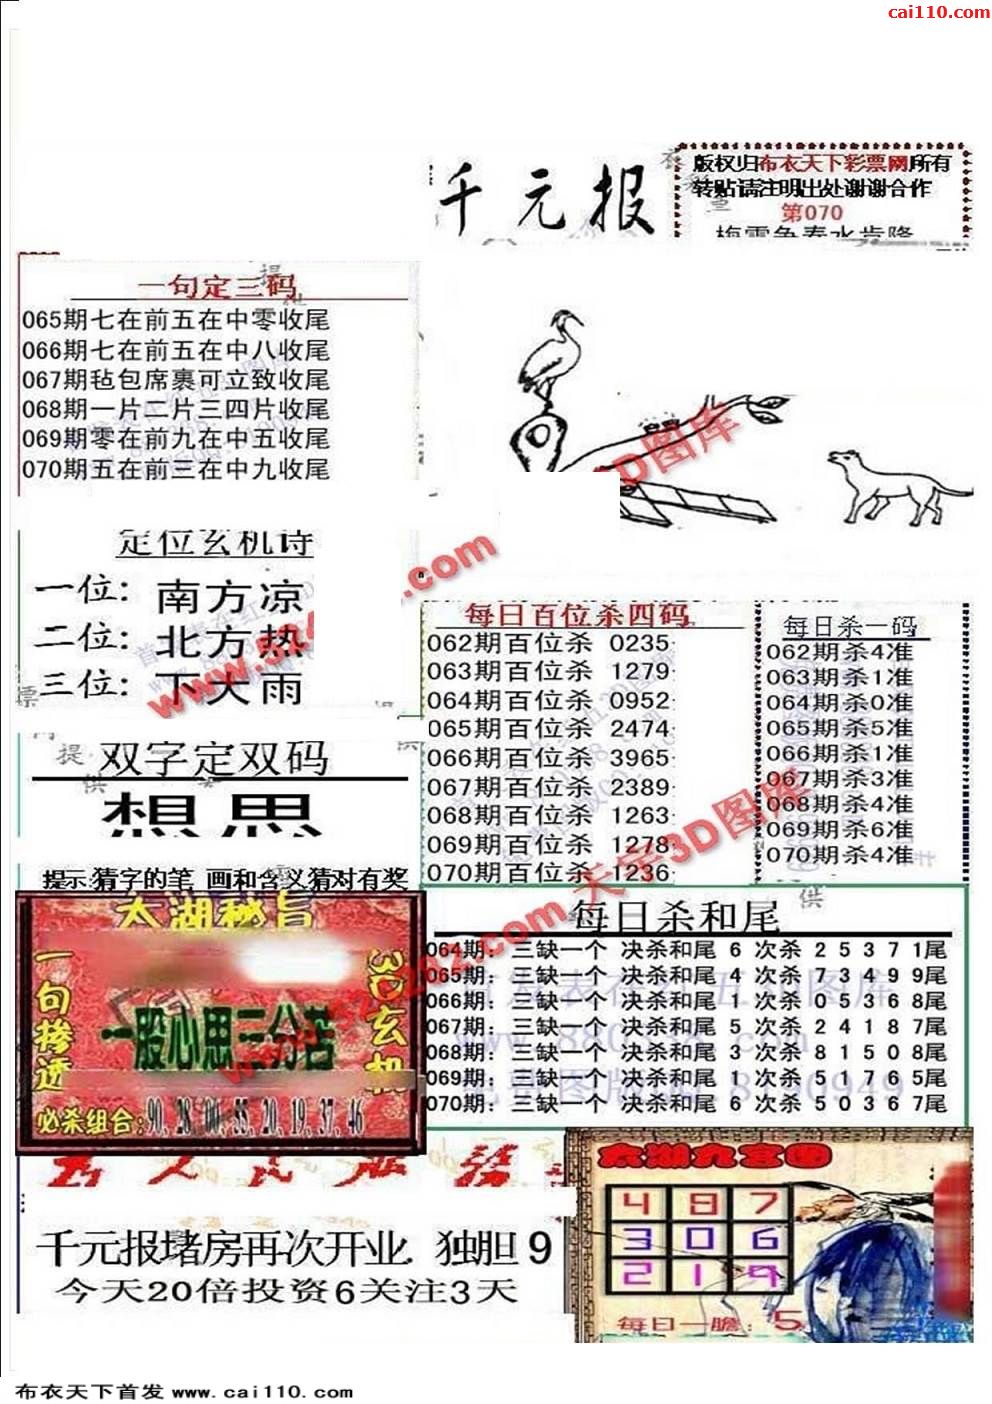 cai110.com
千元报
版权归布衣天下彩票网所有
转贴请注明出处谢谢合作
第070
梅雪争春水步隆
一句定三码
065期七在前五在中零收尾
066期七在前五在中八收尾
067期毡包席裹可立致收尾
068期一片二片三四片收尾
069期零在前九在中五收尾
070期五在前三在中九收尾
定位玄机诗
一位: 南方凉
二位: 北方热
三位: 下大雨
双字定双码
想思
提示:猜字的笔 画和含义猜对有奖
每日百位杀四码
062期百位杀 0235
063期百位杀 1279
064期百位杀 0952
065期百位杀 2474
066期百位杀 3965
067期百位杀 2389
068期百位杀 1263
069期百位杀 1278
070期百位杀 1236
每日杀一码
062期杀4准
063期杀1准
064期杀0准
065期杀5准
066期杀1准
067期杀3准
068期杀4准
069期杀6准
070期杀4准
太湖秘旨
一句掺透
3D玄机
一股心思三分苦
必杀组合:90.28.00.55.20.19.37.46
每日杀和尾
064期: 三缺一个 决杀和尾 6 次杀 2 5 3 7 1尾
065期: 三缺一个 决杀和尾 4 次杀 7 3 4 9 9尾
066期: 三缺一个 决杀和尾 1 次杀 0 5 3 6 8尾
067期: 三缺一个 决杀和尾 5 次杀 2 4 1 8 7尾
068期: 三缺一个 决杀和尾 3 次杀 8 1 5 0 8尾
069期: 三缺一个 决杀和尾 1 次杀 5 1 7 6 5尾
070期: 三缺一个 决杀和尾 6 次杀 5 0 3 6 7尾
千元报堵房再次开业. 独胆 9
今天20倍投资6关注3天
太湖九宫图
4 8 7
3 0 6
2 1 9
每日一胆: 5
天宇3D图库
布衣天下首发 www.cai110.com